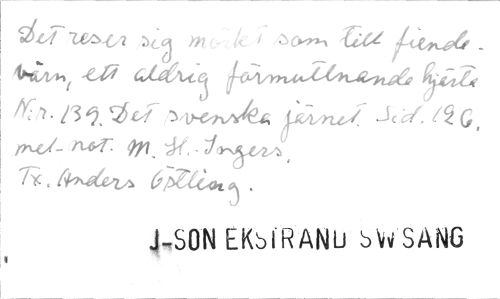 Det reser sig mörkt som till fiende-
värn, ett aldrig förmultnande hjärta
N:r. 139. Det svenska järnet. Sid. 126.
mel.-not. M. H.-Ingers.
Tx. Anders Östling.
J-SON EKSTRAND SW SANG